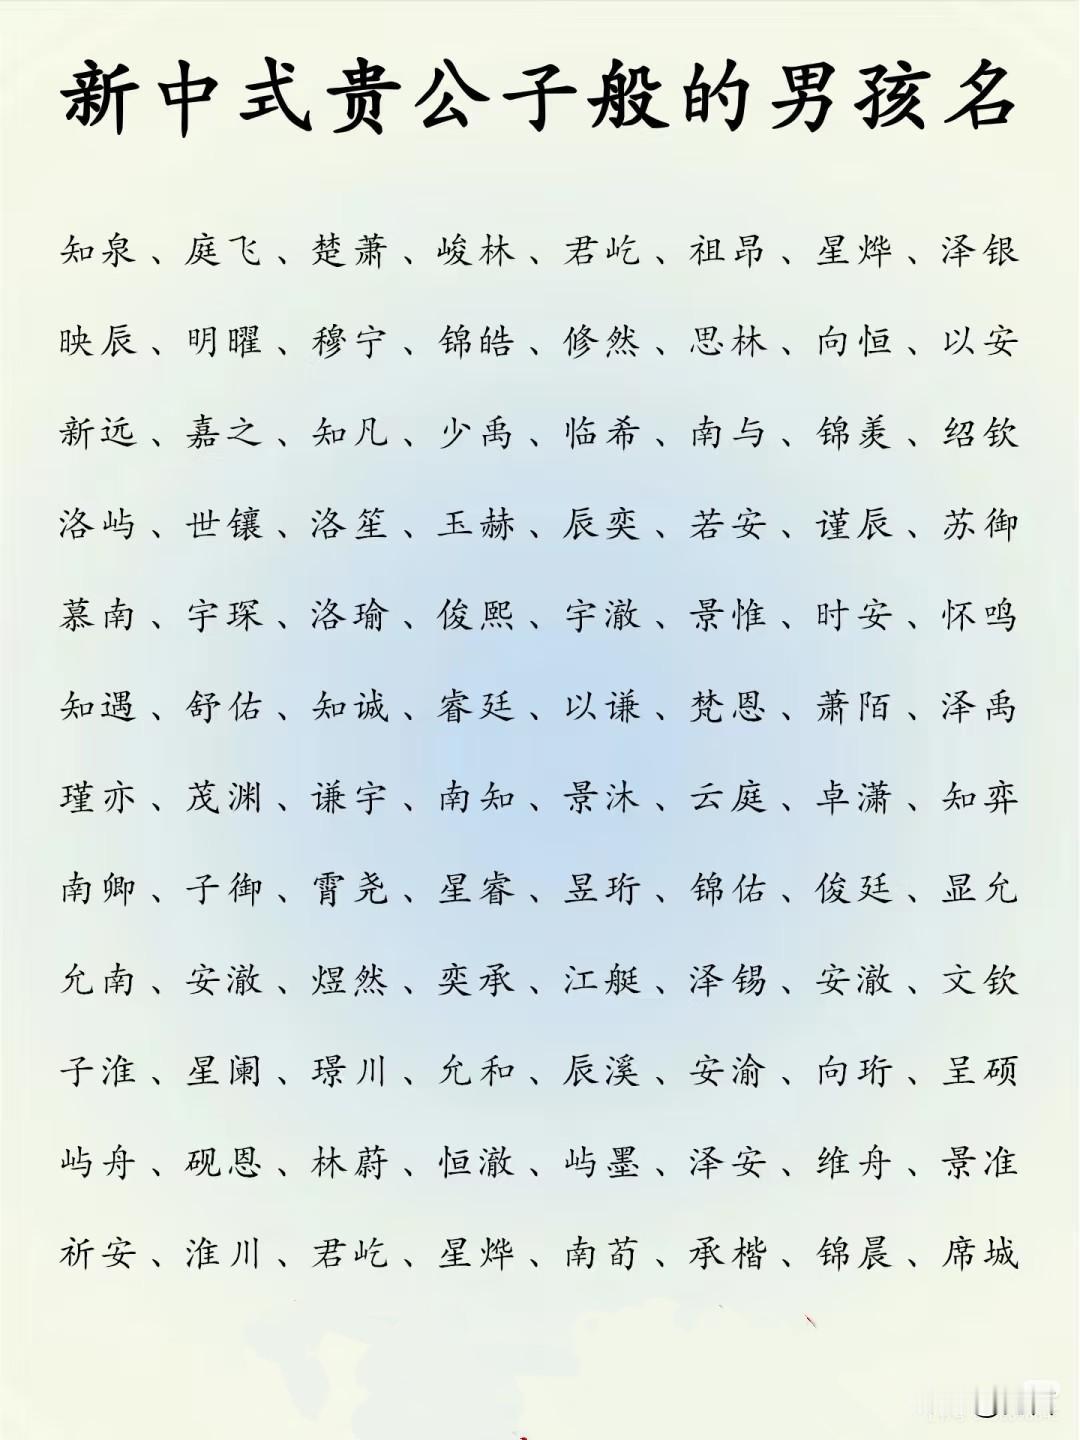 新中式贵公子般的男孩名
知泉、庭飞、楚萧、峻林、君屹、祖昂、星烨、泽银
映辰、明曜、穆宁、锦皓、修然、思林、向恒、以安
新远、嘉之、知凡、少禹、临希、南与、锦羡、绍钦
洛屿、世镶、洛笙、玉赫、辰奕、若安、谨辰、苏御
慕南、宇琛、洛瑜、俊熙、宇澈、景惟、时安、怀鸣
知遇、舒佑、知诚、睿廷、以谦、梵恩、萧陌、泽禹
瑾亦、茂渊、谦宇、南知、景沐、云庭、卓潇、知弈
南卿、子御、霄尧、星睿、昱珩、锦佑、俊廷、显允
允南、安澈、煜然、奕承、江艇、泽锡、安澈、文钦
子淮、星阑、璟川、允和、辰溪、安渝、向珩、呈硕
屿舟、砚恩、林蔚、恒澈、屿墨、泽安、维舟、景准
祈安、淮川、君屹、星烨、南荀、承楷、锦晨、席城